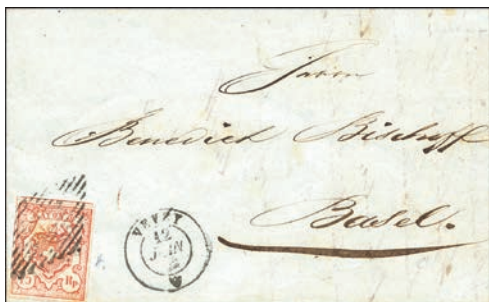 Herrn
Benedict Bischoff
Basel.
VEVEY
12
JUIN
Rp.